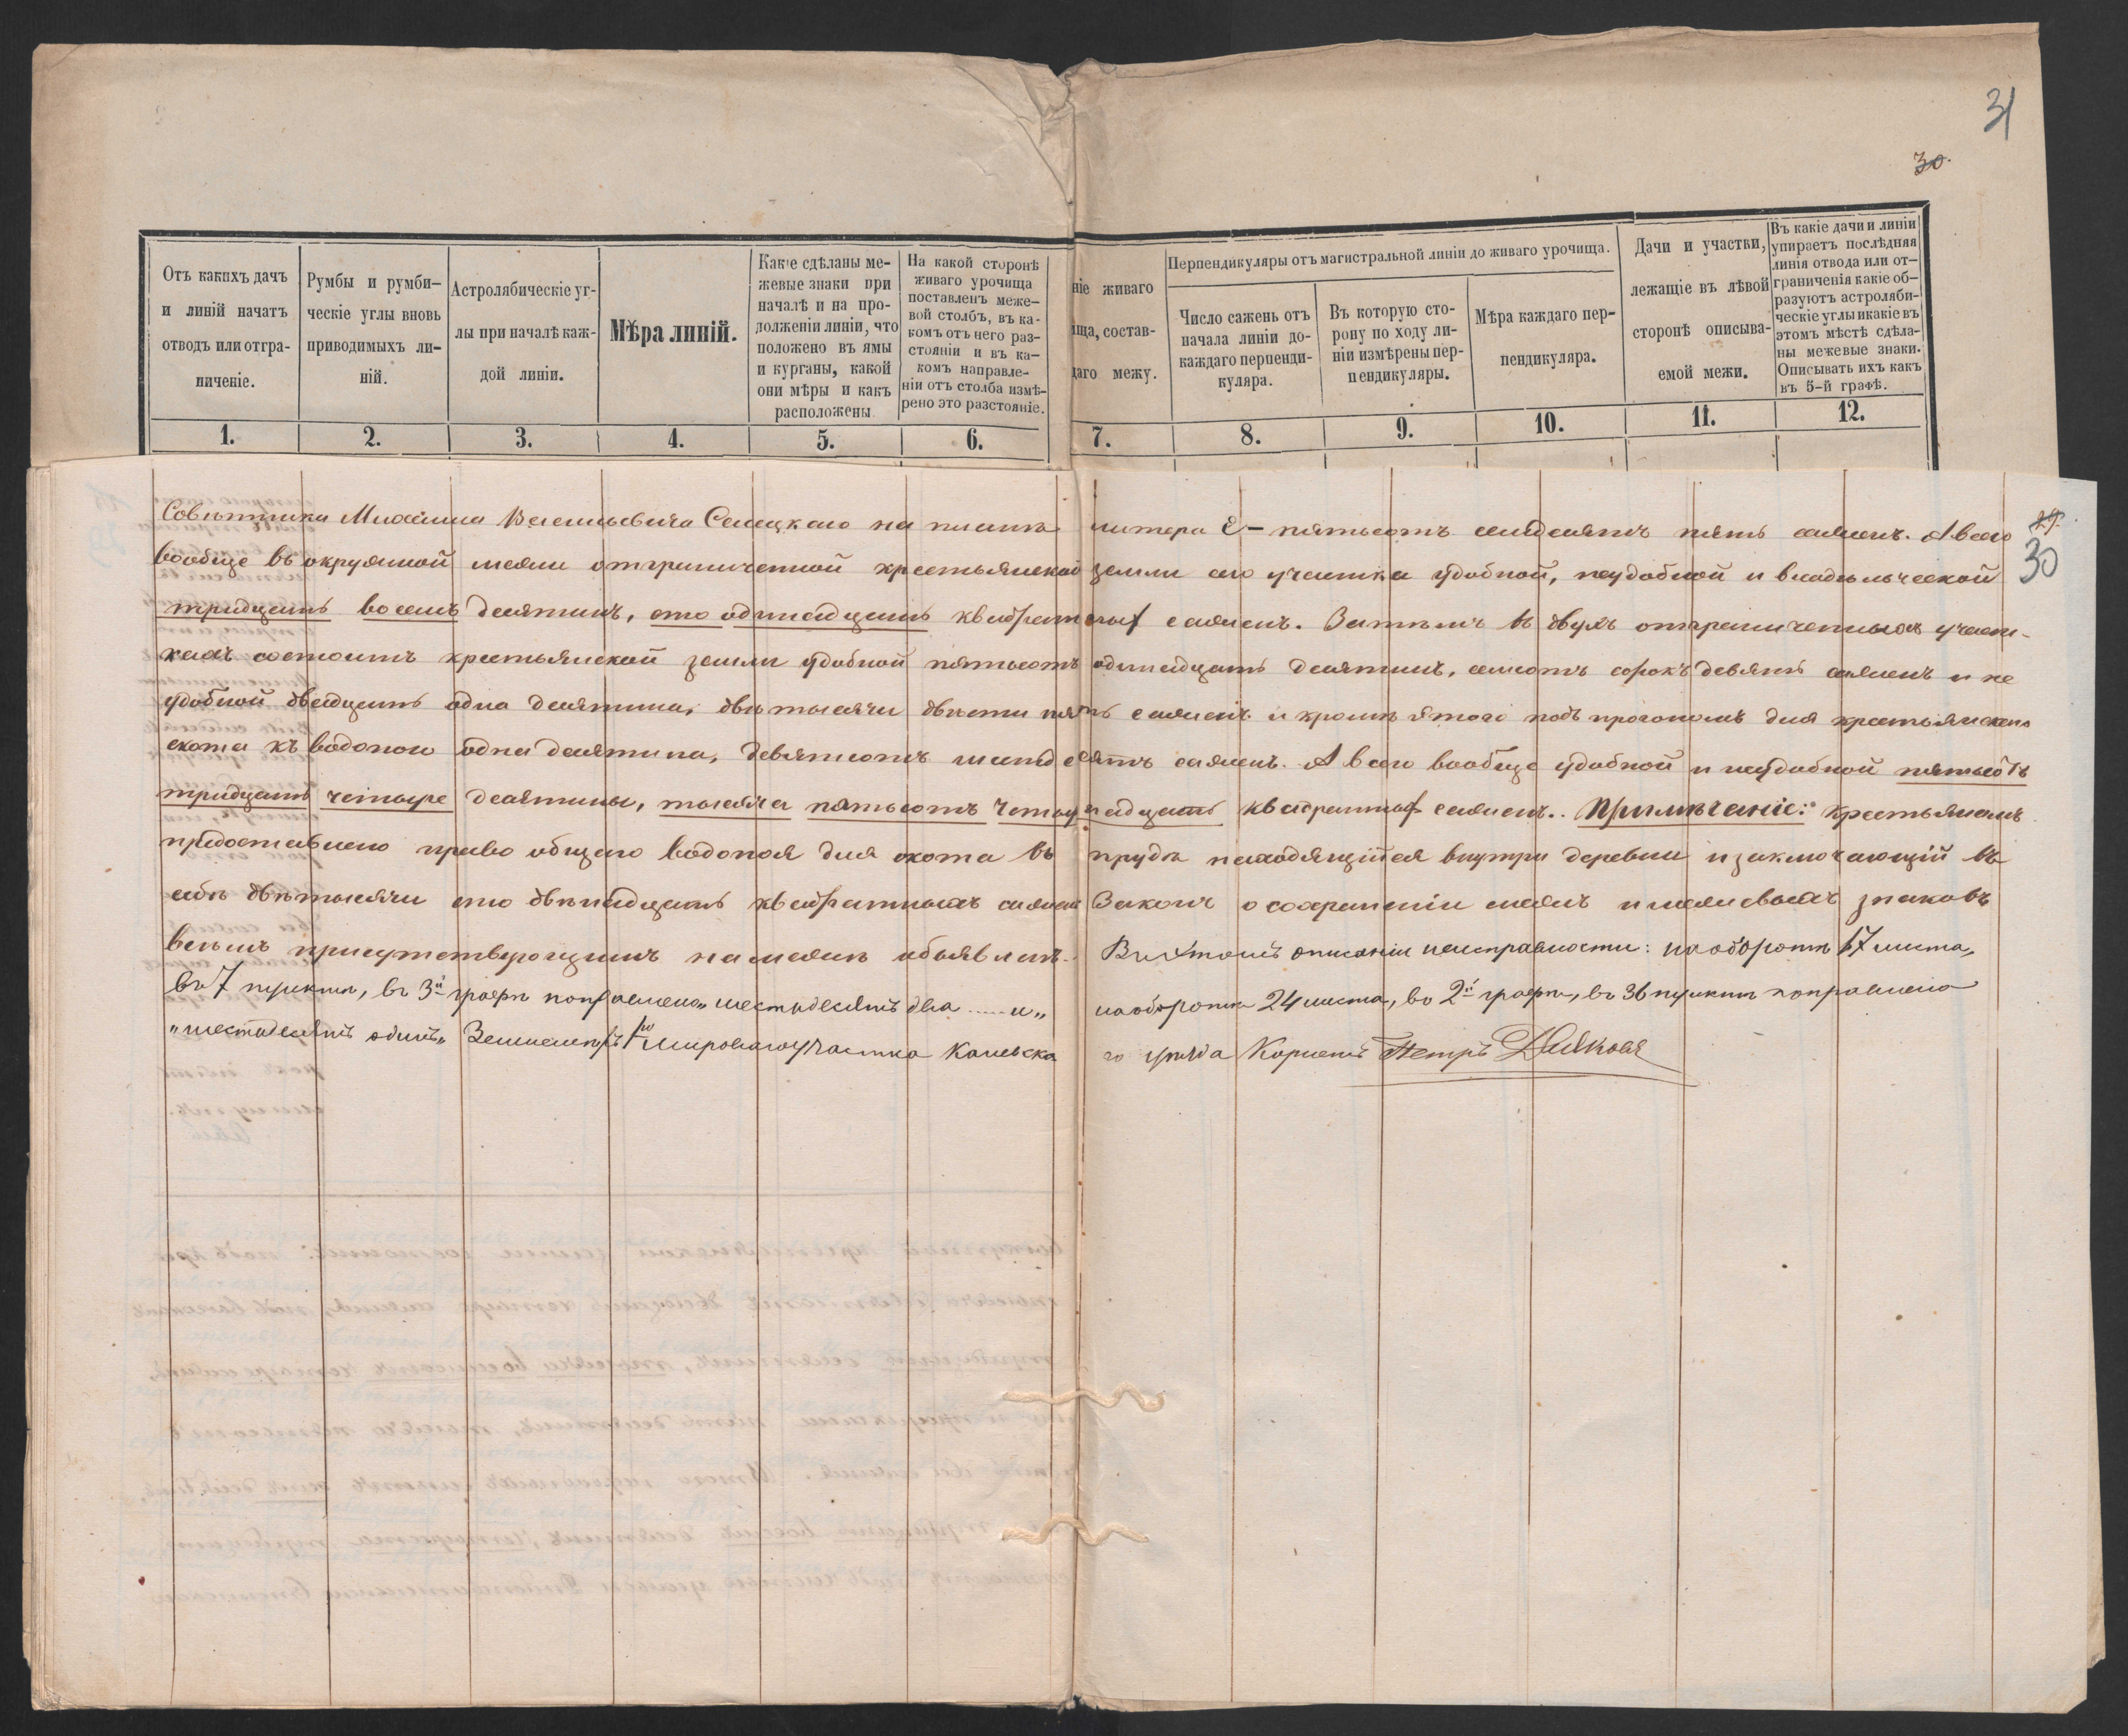 31
30.
Отъ какихъ дачъ и линій начатъ отводъ или отграниченіе.
Румбы и румби-ческіе углы вновь приводимыхъ ли-ній.
Астролябическіе уг-лы при началѣ каж-дой линіи.
Мѣра линій.
Какіе сдѣланы ме-жевые знаки при началѣ и на про-долженіи линіи, что положено въ ямы и курганы, какой они мѣры и какъ расположены
На какой сторонѣ живаго урочища поставленъ меже-вой столбъ, въ ка-комъ отъ него раз-стояніи и въ ка-комъ направле-ніи отъ столба измѣ-рено это разстояніе.
ніе живаго
ща, состав-
щаго межу.
Перпендикуляры отъ магистральной линіи до живаго урочища.
Число сажень отъ начала линіи до-каждаго перпенди-куляра.
Въ которую сто-рону по ходу ли-ніи измѣрены пер-пендикуляры.
Мѣра каждаго пер-пендикуляра.
Дачи и участки, лежащіе въ лѣвой сторонѣ описыва-емой межи.
Въ какіе дачи и линіи упираетъ послѣдняя линія отвода или от-граниченія какіе об-разуютъ астроляби-ческіе углы и какіе въ этомъ мѣстѣ сдѣла-ны межевые знаки. Описывать ихъ какъ въ 5-й графѣ.
1. 2. 3. 4. 5. 6. 7. 8. 9. 10. 11. 12.
29.
30
Совѣтника Михаила Васильевича Селецкаго на планѣ литера Е – пятьсотъ семдесятъ пять сажень. А всего
вообще въ окружной межи отграниченной крестьянской земли сего участка удобной, неудобной и владѣльческой
тридцать восемь десятинъ, сто одинадцать квадратныхъ сажень. Затѣмъ въ двухъ отграниченныхъ участ-
кахъ состоитъ крестьянской земли удобной пятьсотъ одинадцать десятинъ, семсотъ сорокъ девять сажень и не
удобной двадцать одна десятина, двѣ тысячи двѣсти пять сажень и кромѣ этого подъ прогономъ для крестьянскаго
скота къ водопою одна десятина, девятьсотъ шестдесятъ сажень. А всего вообще удобной и неудобной пятьсотъ
тридцать четыре десятины, тысяча пятьсотъ четырнадцать квадратныхъ сажень. Примѣчаніе: крестьянамъ
предоставлено право общаго водопоя для скота въ прудѣ находящійся внутри деревни и заключающій въ
себѣ двѣ тысячи сто двѣнадцать квадратныхъ сажень Законъ о сохраненіи межъ и межевыхъ знаковъ
всѣмъ присутствующимъ на межѣ объявленъ. Въ этомъ описаніи неисправности: на оборотѣ 17 листа,
въ 7 пунктѣ, въ 3й графѣ поправлено „шестьдесятъ два ..... и„ на оборотѣ 24 листа, во 2й графѣ, въ 36 пунктѣ поправлено
„шестьдесятъ одинъ„ Землемѣръ 1го Мироваго участка Каневска го уѣзда Корнетъ Петръ